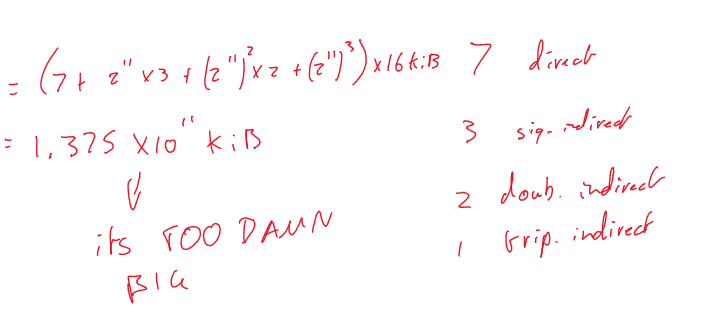 = (7 + 2¹¹ x 3 + (2¹¹)² x 2 + (2¹¹)³) x 16 kiB
= 1.375 x 10¹¹ kiB
its TOO DAMN
BIG
7 direct
3 sig. indirect
2 doub. indirect
1 trip. indirect